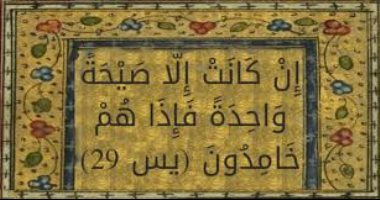 إِنْ كَانَتْ إِلَّا صَيْحَةً
وَاحِدَةً فَإِذَا هُمْ
خَامِدُونَ (يس 29)